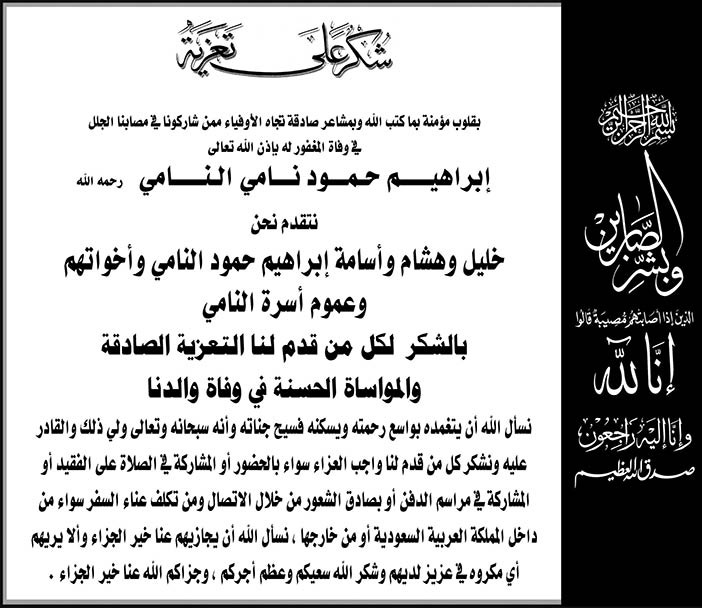 شكر على تعزية
بقلوب مؤمنة بما كتب الله وبمشاعر صادقة تجاه الأوفياء ممن شاركونا في مصابنا الجلل
في وفاة المغفور له بإذن الله تعالى
إبراهيم حمود نامي النامي رحمه الله
نتقدم نحن
خليل وهشام وأسامة إبراهيم حمود النامي وأخواتهم
وعموم أسرة النامي
بالشكر لكل من قدم لنا التعزية الصادقة
والمواساة الحسنة في وفاة والدنا
نسأل الله أن يتغمده بواسع رحمته ويسكنه فسيح جناته وأنه سبحانه وتعالى ولي ذلك والقادر
عليه ونشكر كل من قدم لنا واجب العزاء سواء بالحضور أو المشاركة في الصلاة على الفقيد أو
المشاركة في مراسم الدفن أو بصادق الشعور من خلال الاتصال ومن تكلف عناء السفر سواء من
داخل المملكة العربية السعودية أو من خارجها ، نسأل الله أن يجازيهم عنا خير الجزاء وألا يريهم
أي مكروه في عزيز لديهم وشكر الله سعيكم وعظم أجركم ، وجزاكم الله عنا خير الجزاء .
بسم الله الرحمن الرحيم
وبشر الصابرين
الذين إذا أصابتهم مصيبة قالوا
إنا لله
وإنا إليه راجعون
صدق الله العظيم